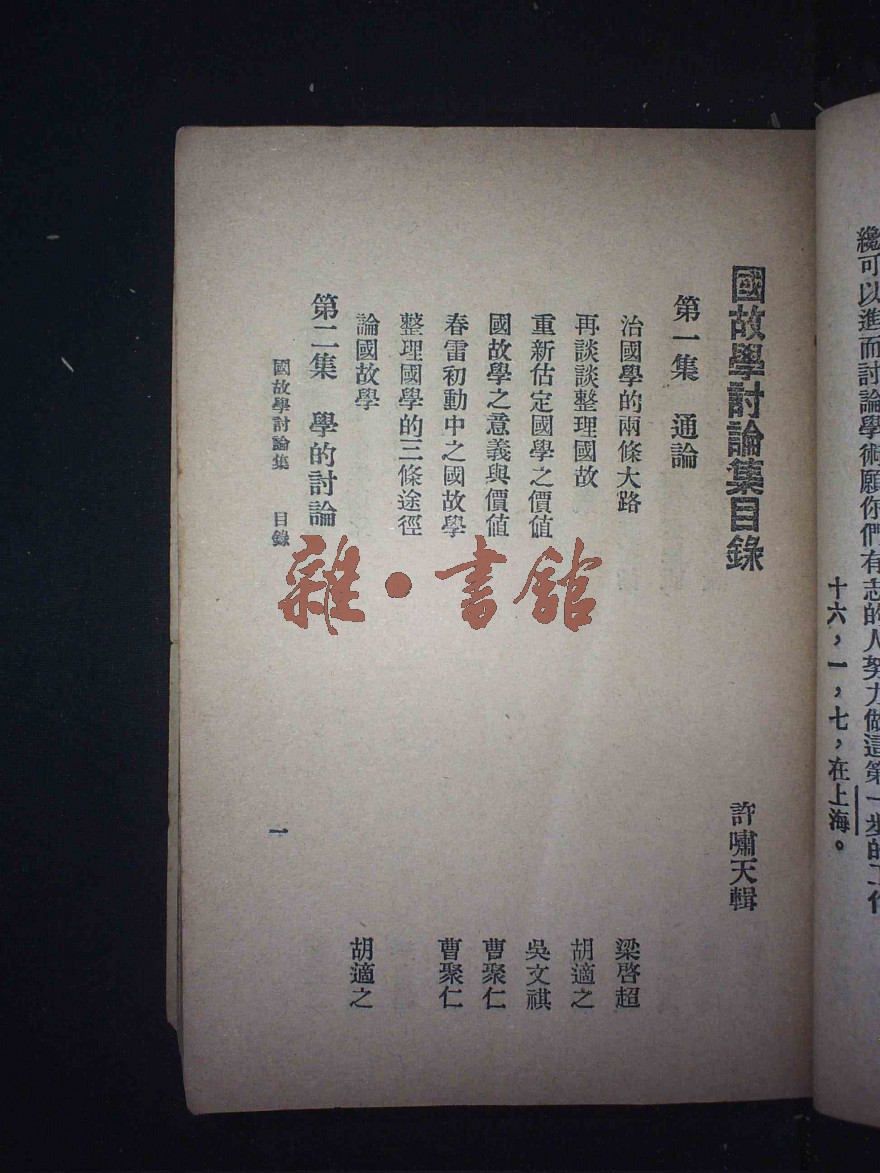 纔可以進而討論學術願你們有志的人努力做這第一步的工作
十六，一，七，在上海。
國故學討論集目錄
許嘯天輯
第一集　通論
治國學的兩條大路　梁啓超
再談談整理國故　胡適之
重新估定國學之價值　吳文祺
國故學之意義與價值　曹聚仁
春雷初動中之國故學　曹聚仁
整理國學的三條途徑
論國故學　胡適之
第二集　學的討論
國故學討論集　目錄
一
雜·書館